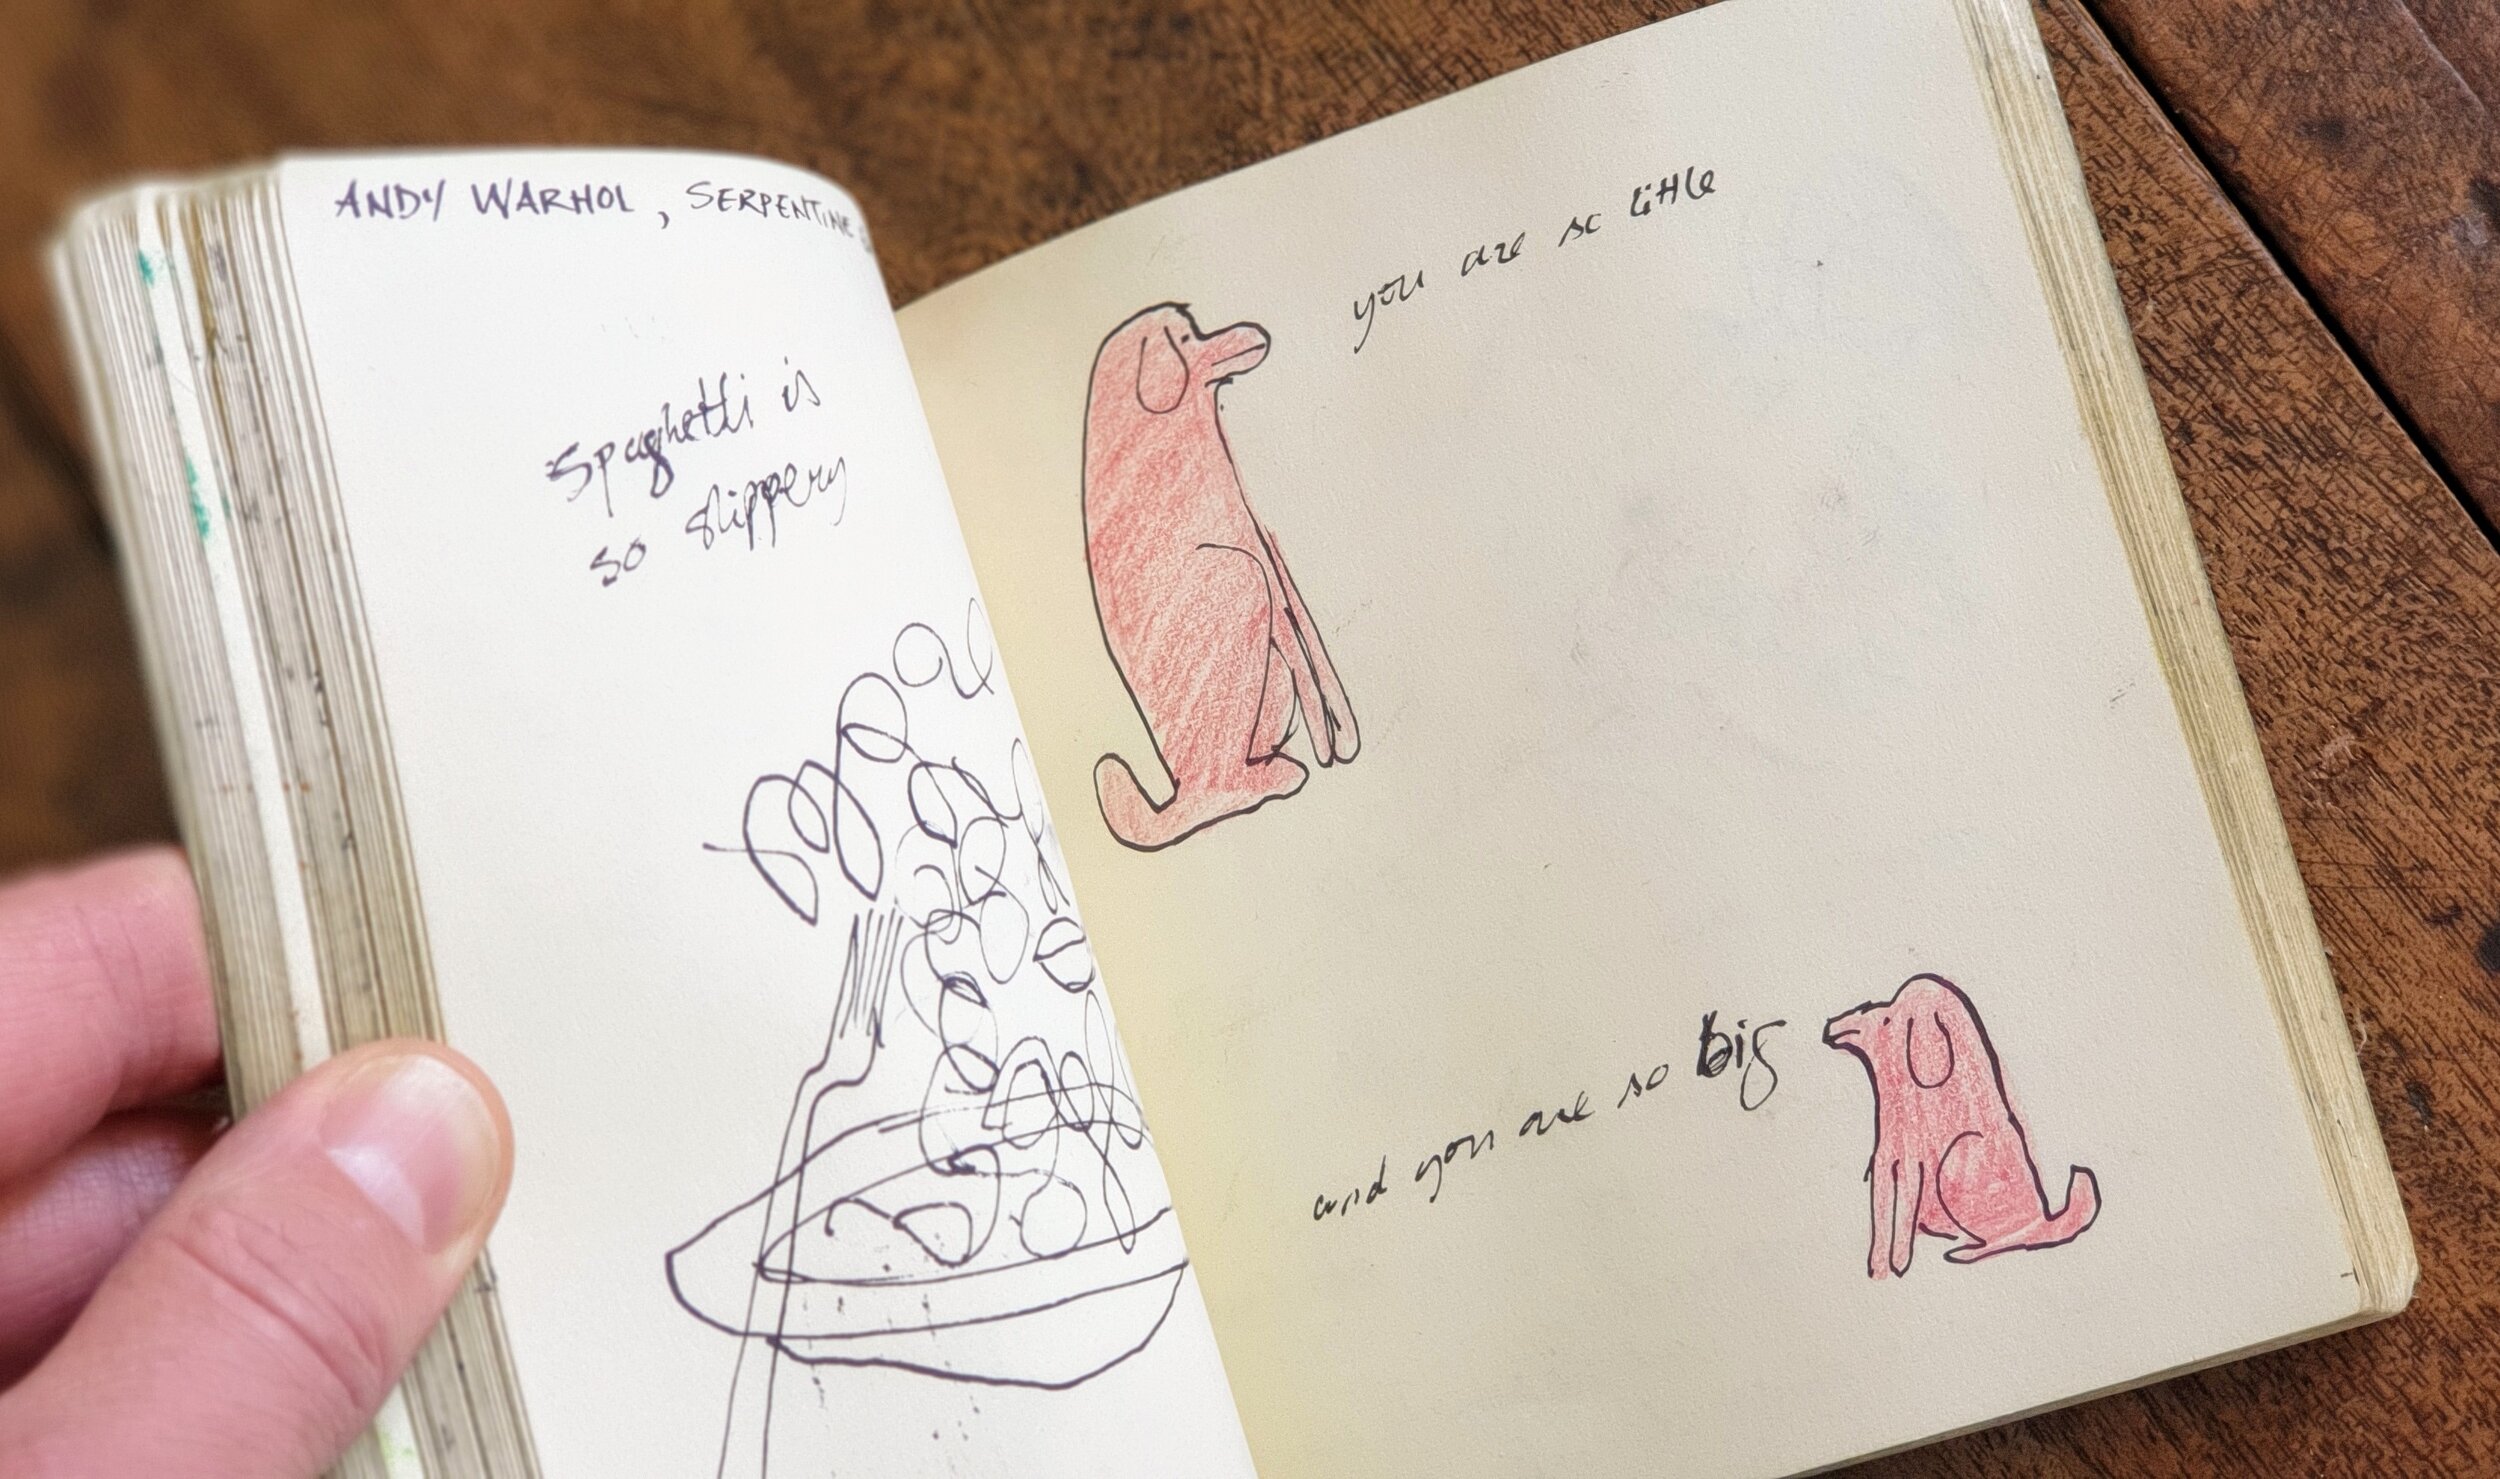 ANDY WARHOL, SERPENTINE
Spaghetti is
so slippery
you are so little
and you are so big